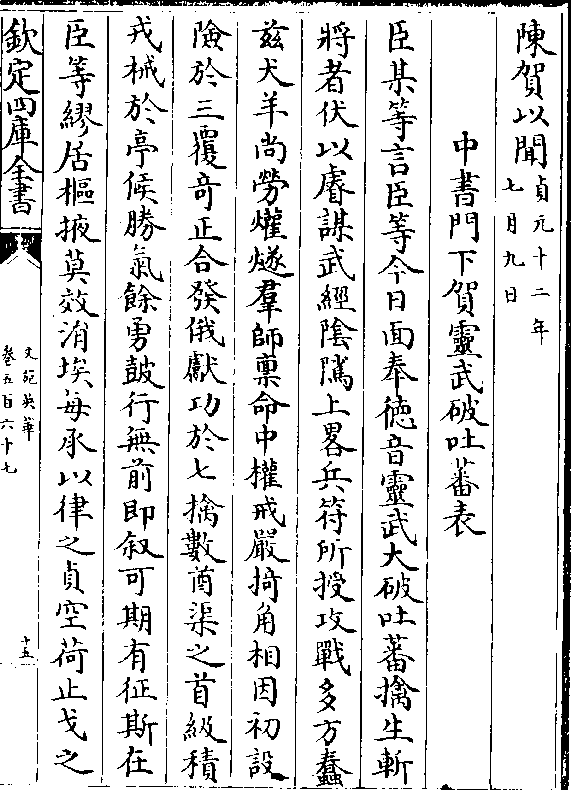 陳賀以聞貞元十二年
七月九日
中書門下賀靈武破吐蕃表
臣某等言臣等今日面奉徳音靈武大破吐蕃擒生斬
將者伏以睿謀武經陰隲上畧兵符所授攻戰多方蠢
兹犬羊尚勞爟燧羣師禀命中權戒嚴掎角相因初設
險於三覆竒正合發俄獻功於七擒數酋渠之首級積
戎械於亭候勝氣餘勇鼓行無前即叙可期有征斯在
臣等繆居樞掖莫效涓埃毎承以律之貞空荷止戈之
欽定四庫全書
文苑英華
卷五百六十七
十五